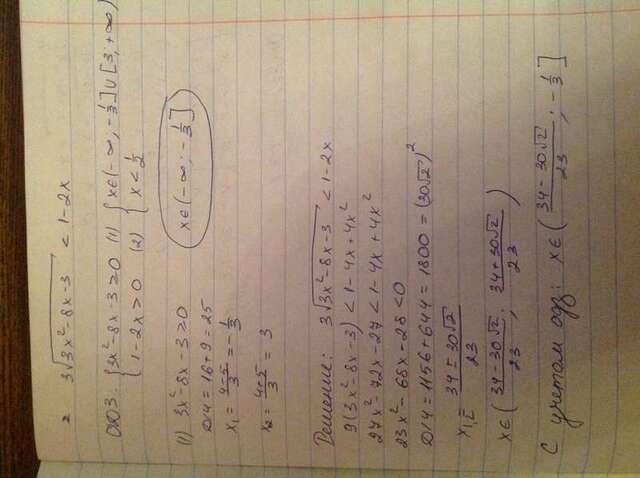 2. 3√(3x²-8x-3) < 1-2x
ОДЗ: { 3x²-8x-3≥0 (1) { x∈(-∞, -1/3]∪[3, +∞)
1-2x>0 (2) x<1/2
(1) 3x²-8x-3≥0 x∈(-∞; -1/3]
D/4=16+9=25
x₁= (4-5)/3 = -1/3
x₂= (4+5)/3 = 3
Решение: 3√(3x²-8x-3) < 1-2x
9(3x²-8x-3)<1-4x+4x²
27x²-72x-27<1-4x+4x²
23x²-68x-28<0
D/4=1156+644=1800=(30√2)²
x₁,₂= (34±30√2)/23
x∈( (34-30√2)/23 ; (34+30√2)/23 )
С учетом одз: x∈( (34-30√2)/23 ; -1/3 ]